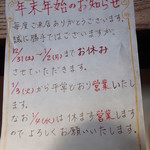 年末年始のお知らせ
毎度ご来店ありがとうございます。
誠に勝手ではございますが、
12/31(土)→1/2(月)までお休み
させていただきます。
1/3(火)から平常どおり営業いたし
ます。
なお1/4(水)は休まず営業します
のでよろしくお願いいたします。